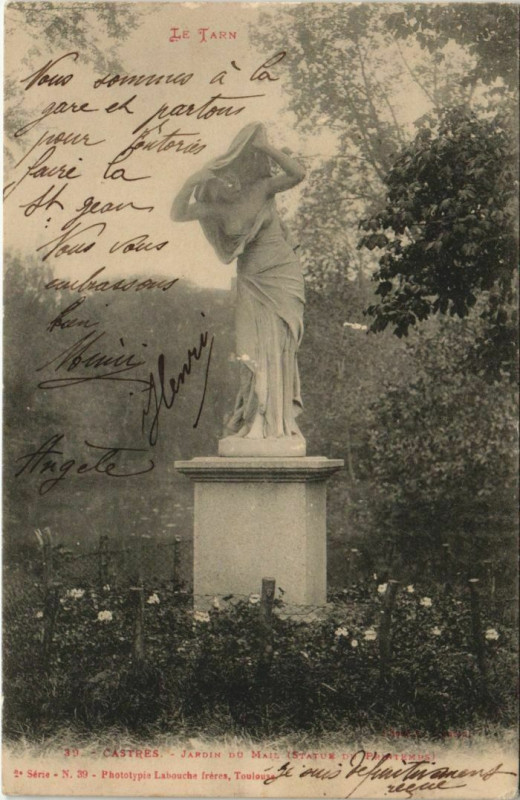 LE TARN
Nous sommes à la
gare et partons
pour
faire la
St Jean
Nous vous
embrassons
bien
Henri
Angèle
39. - CASTRES. - JARDIN DU MAIL (STATUE DU PRINTEMPS)
2e Série - N. 39 - Phototypie Labouche frères, Toulouse
reçue